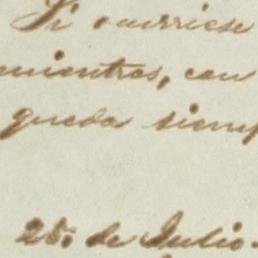 Si ocurriese
mientras, con
queda siemp
25, de Julio.